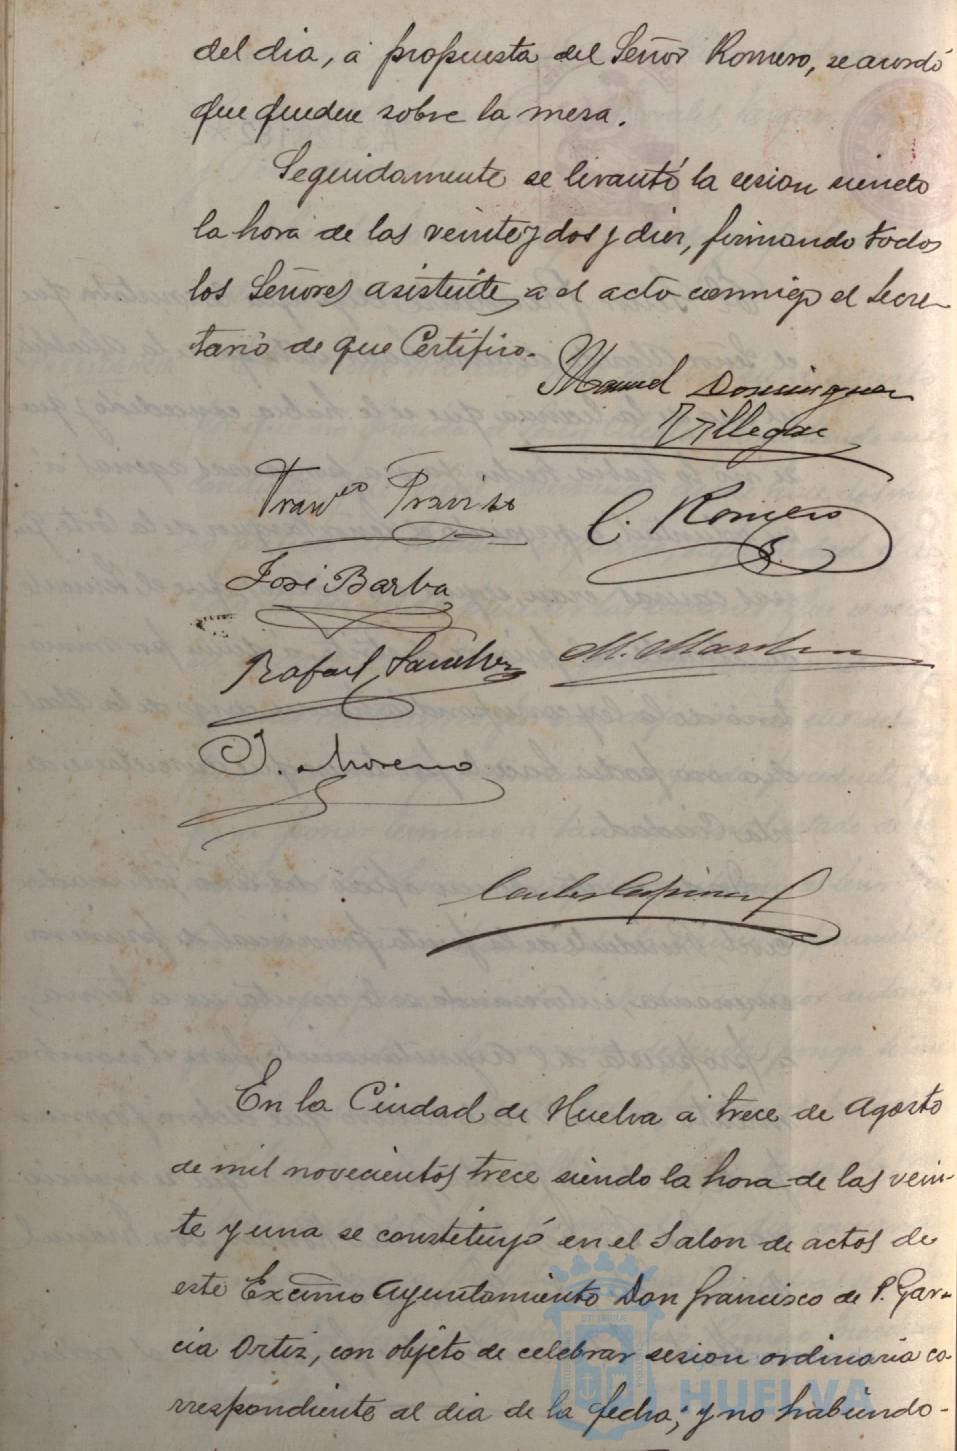 del dia, á propuesta del Señor Romero, se acordó
que queden sobre la mesa.
Seguidamente se levantó la sesion siendo
la hora de las veinte y dos y diez, firmando todos
los Señores asistentes a el acto conmigo el Secre-
tario de que Certifico.
Manuel Dominguez
Villegas
Franco
C. Romero
José Barba
Rafael Sanchez M.
J. Moreno
Carlos
En la Ciudad de Huelva á trece de Agosto
de mil novecientos trece siendo la hora de las vein-
te y una se constituyó en el Salon de actos de
este Excmo Ayuntamiento Don Francisco de P. Gar-
cia Ortiz, con objeto de celebrar sesion ordinaria co-
rrespondiente al dia de la fecha; y no habiendo-
HUELVA